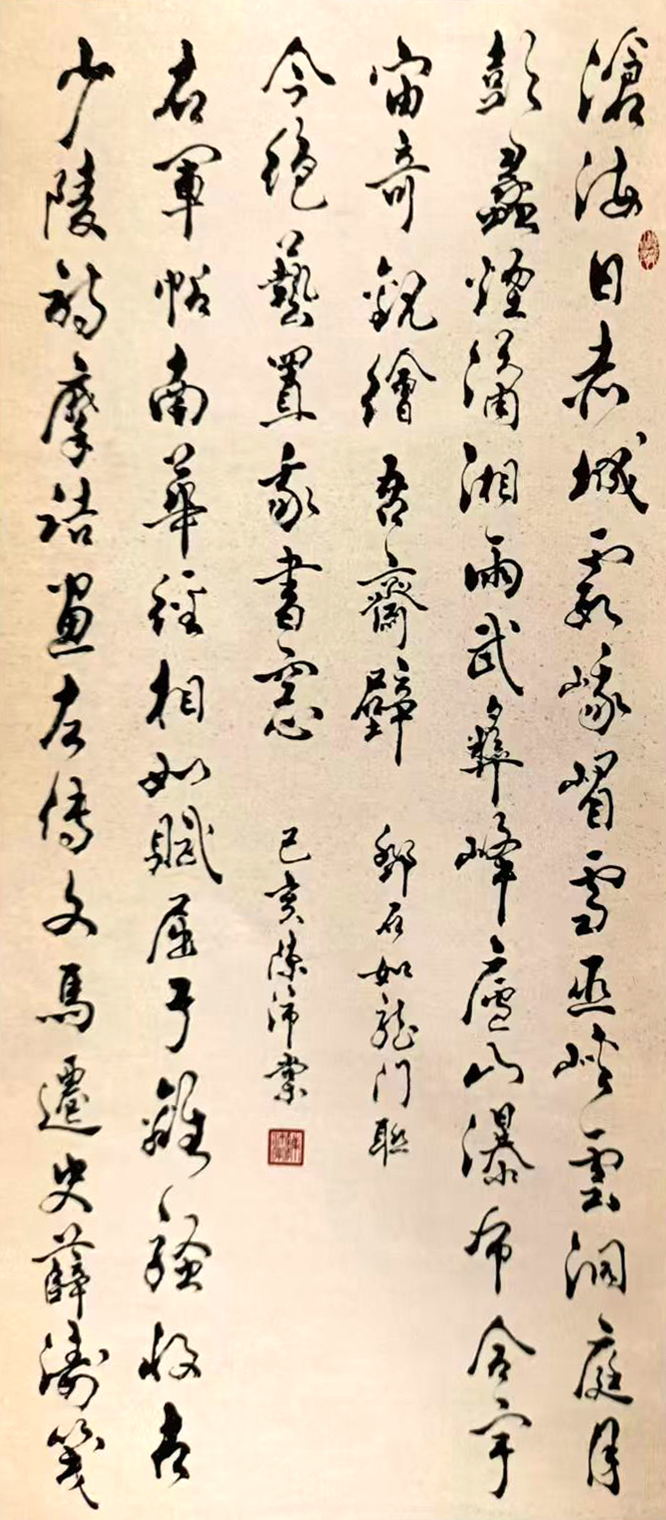 滄海日赤城霞峨嵋雪巫峽雲洞庭月
彭蠡煙瀟湘雨武彝峰廬山瀑布合宇
宙奇觀繪吾齋壁
鄧石如龍门联
少陵詩摩詰畫左傳文馬遷史薛濤箋
右軍帖南華經相如賦屈子離騷收古
今絕藝置我書窓
己亥